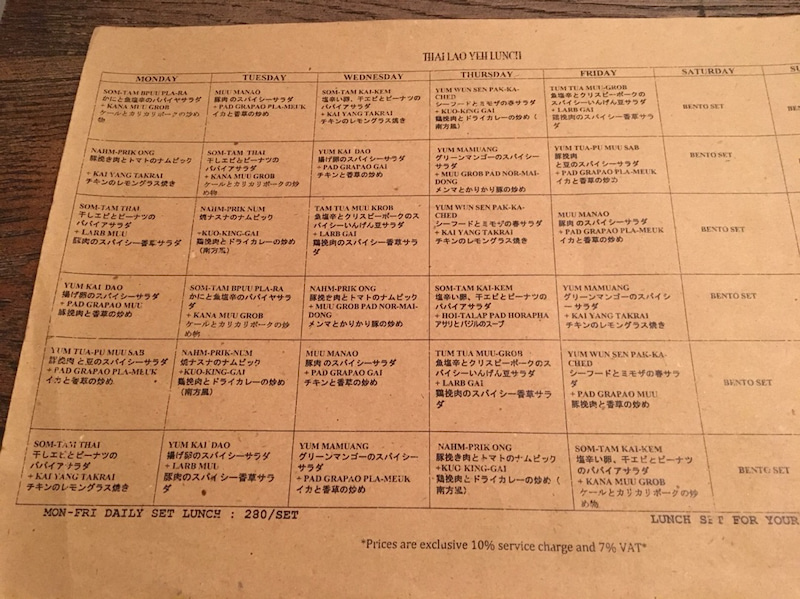 THAI LAO YEH LUNCH
MONDAY
TUESDAY
WEDNESDAY
THURSDAY
FRIDAY
SATURDAY
SU
SOM-TAM BPUU PLA-RA
かにと魚塩辛のパパイヤサラダ
+ KANA MUU GROB
ケールとカリカリポークの炒め物
MUU MANAO
豚肉のスパイシーサラダ
+ PAD GRAPAO PLA-MEUK
イカと香草の炒め
SOM-TAM KAI-KEM
塩辛い卵、干エビとピーナツ
のパパイアサラダ
+ KAI YANG TAKRAI
チキンのレモングラス焼き
YUM WUN SEN PAK-KA-
CHED
シーフードとミモザの春サラダ
+ KUO-KING GAI
鶏挽肉とドライカレーの炒め（
南方風）
TUM TUA MUU-GROB
魚塩辛とクリスピーポークの
スパイシーいんげん豆サラダ
+ LARB GAI
鶏挽肉のスパイシー香草サラ
ダ
BENTO SET
NAHM-PRIK ONG
豚挽き肉とトマトのナムピック
+ KAI YANG TAKRAI
チキンのレモングラス焼き
SOM-TAM THAI
干しエビとピーナツの
パパイアサラダ
+ KANA MUU GROB
ケールとカリカリポークの炒
め物
YUM KAI DAO
揚げ卵のスパイシーサラダ
+ PAD GRAPAO GAI
チキンと香草の炒め
YUM MAMUANG
グリーンマンゴーのスパイシー
サラダ
+ MUU GROB PAD NOR-MAI-
DONG
メンマとかりかり豚の炒め
YUM TUA-PU MUU SAB
豚挽肉
と豆のスパイシーサラダ
+ PAD GRAPAO PLA-MEUK
イカと香草の炒め
BENTO SET
SOM-TAM THAI
干しエビとピーナツの
パパイアサラダ
+ LARB MUU
豚肉のスパイシー香草サラダ
NAHM-PRIK NUM
焼ナスナのナムピック
+KUO-KING-GAI
鶏挽肉とドライカレーの炒め
（南方風）
TAM TUA MUU KROB
魚塩辛とクリスピーポークのス
パイシーいんげん豆サラダ
+ LARB GAI
鶏挽肉のスパイシー香草サラ
ダ
YUM WUN SEN PAK-KA-
CHED
シーフードとミモザの春サラダ
+ KAI YANG TAKRAI
チキンのレモングラス焼き
MUU MANAO
豚肉 のスパイシーサラダ
+ PAD GRAPAO PLA-MEUK
イカと香草の炒め
BENTO SET
YUM KAI DAO
揚げ卵のスパイシーサラダ
+ PAD GRAPAO MUU
豚挽肉と香草の炒め
SOM-TAM BPUU PLA-RA
かにと魚塩辛のパパイヤサラ
ダ
+ KANA MUU GROB
ケールとカリカリポークの炒
め物
NAHM-PRIK ONG
豚挽き肉とトマトのナムピック
+ MUU GROB PAD NOR-MAI-
DONG
メンマとかりかり豚の炒め
SOM-TAM KAI-KEM
塩辛い卵、干エビとピーナツの
パパイアサラダ
+ HOI-TALAP PAD HORAPHA
アサリとバジルのスープ
YUM MAMUANG
グリーンマンゴーのスパイシ
ーサラダ
+ KAI YANG TAKRAI
チキンのレモングラス焼き
BENTO SET
YUM TUA-PU MUU SAB
豚挽肉 と豆のスパイシーサラダ
+ PAD GRAPAO PLA-MEUK
イカと香草の炒め
NAHM-PRIK-NUM
焼ナスナのナムピック
+KUO-KING-GAI
鶏挽肉とドライカレーの炒め
（南方風）
MUU MANAO
豚肉 のスパイシーサラダ
+ PAD GRAPAO GAI
チキンと香草の炒め
TUM TUA MUU-GROB
魚塩辛とクリスピーポークのス
パイシーいんげん豆サラダ
+ LARB GAI
鶏挽肉のスパイシー香草サラ
ダ
YUM WUN SEN PAK-KA-
CHED
シーフードとミモザの春サラ
ダ
+ PAD GRAPAO MUU
豚挽肉と香草の炒め
BENTO SET
SOM-TAM THAI
干しエビとピーナツの
パパイアサラダ
+ KAI YANG TAKRAI
チキンのレモングラス焼き
YUM KAI DAO
揚げ卵のスパイシーサラダ
+ LARB MUU
豚肉のスパイシー香草サラ
ダ
YUM MAMUANG
グリーンマンゴーのスパイシーサ
ラダ
+ PAD GRAPAO PLA-MEUK
イカと香草の炒め
NAHM-PRIK ONG
豚挽き肉とトマトのナムピック
+KUO KING-GAI
鶏挽肉とドライカレーの炒め（
南方風）
SOM-TAM KAI-KEM
塩辛い卵、干エビとピーナツ
のパパイアサラダ
+ KANA MUU GROB
ケールとカリカリポークの炒
め物
BENTO SET
MON-FRI DAILY SET LUNCH : 280/SET
LUNCH SET FOR YOUR
*Prices are exclusive 10% service charge and 7% VAT*